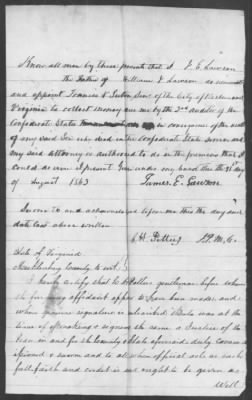 Know all men by these presents that I J. E. Lawson
the Father of William J. Lawson do
and appoint Francis Sutton Senr of the City of Richmond
Virginia to collect money due me by the 2nd auditor of the
Confederate States in consequence of the
of my said Son who died in the Confederate States service and
my said Attorney is authorized to do in the premises that I
could do were I present Given under my hand this the day
of August 1863
James E. Lawson
Sworn to and acknowledged before me this the day and
date last above written
J.P.
State of Virginia
County to wit
I hereby certify that gentleman before whom
the foregoing affidavit appears to have been made and
whose genuine signature is attached thereto was at the
time of so making & signing the same a Justice of the
Peace in and for the County & State aforesaid duly
and sworn and to all whose official acts as such
full faith and credit is and ought to be given as
Well